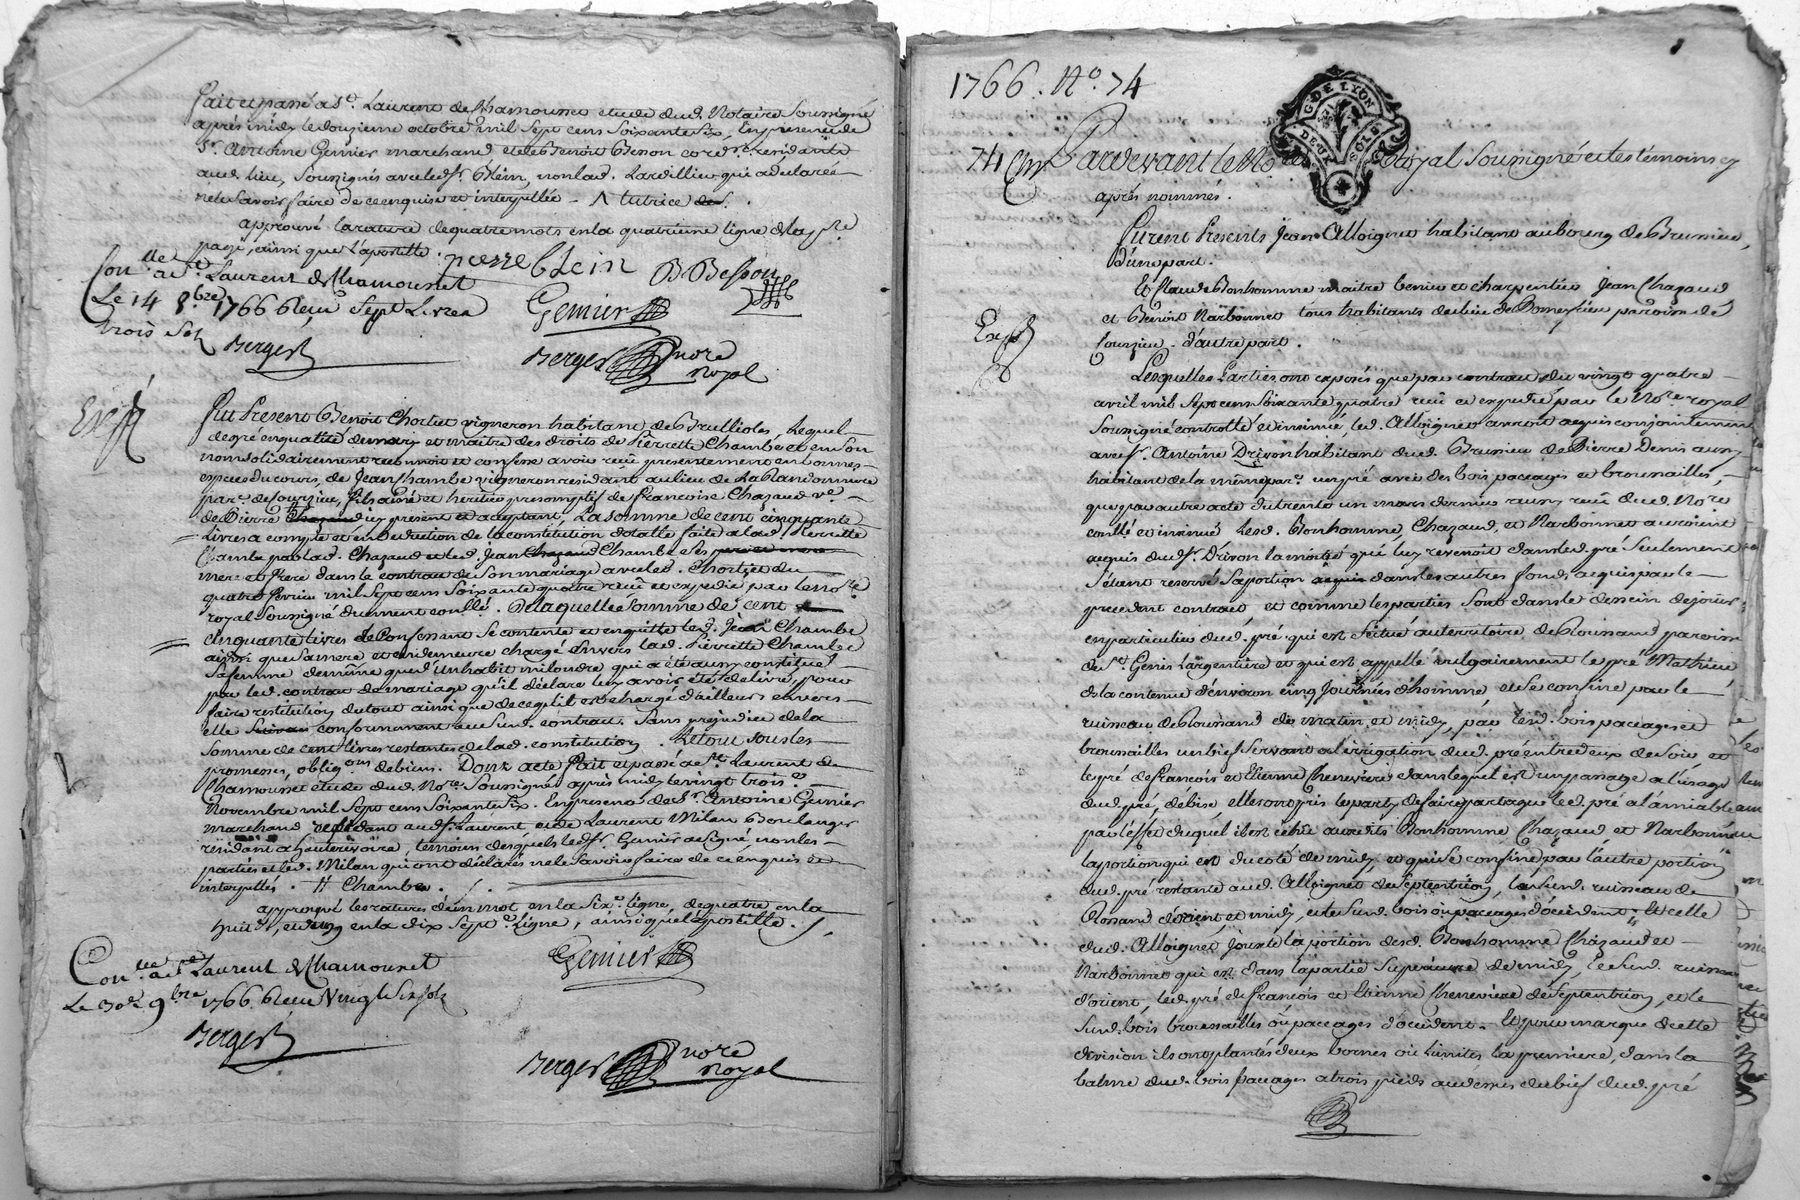 Fait et passé a St. Laurent de Chamousset etude dud. Notaire soussigné
apres midy le douzieme octobre mil sept cens soixante six, En presence de
Sr. Antoine Genier marchand et de Benoit Besson cord.er residants
aud. lieu, soussignés avec led. Sr. Blein, non lad. Lardillier qui a declaré
ne le savoir faire de ce enquise et interpellée - Λ tutrice
approuvé la rature de quatre mots en la quatrieme ligne de la p.re
page, ainsi que l'apostille. pierre blein B Besson
Con.lle a St. Laurent de Chamousset
Le 14 8.bre 1766 Receu sept Livres Genier
trois sols Berger Berger no.re
royal
Exp.
Fut Present Benoit Chortet vigneron habitant de Brullioles, Lequel
degré en qualité de mary et maitre des droits de Pierrette Chambe et en son
nom solidairement reconnoit et confesse avoir reçu presentement en bonnes
especes du cours, de Jean Chambe vigneron residant au lieu de La Blancommere
par.e de Souzieu, fils ainé et heritier presomptif de francoise Chazaud v.e
de Pierre Chazaud icy present et aceptant, La somme de cent cinquante
Livres a compte et en deduction de la constitution dotalle faite a lad. Pierrette
Chambe par lad. Chazaud et led. Jean Chazaud Chambe ses
mere et frere dans le contrat de son mariage avec led. Chortet du
quatre fevrier mil sept cens soixante quatre reçu et expedié par le no.re
royal soussigné duement con.llé. De laquelle somme de cent
cinquante livres le Confessant se contente et en quitte led. Jean Chambe
ainsi que sa mere et en demeure chargé envers lad. Pierrette Chambe
sa femme de même que d'un habit miloudre qui a été aussy constitué
par led. contrat de mariage qu'il déclare luy avoir été delivré, pour
faire restitution du tout ainsi que de ce qu'il est chargé d'ailleurs envers
elle suivan conformement au sud. contrat. Sans prejudice de la
somme de cent livres restantes de lad. constitution. Le tout sous les
promesses, oblig.ons de biens. Dont acte fait et passé a St. Laurent de
Chamousset etude dud. No.re soussigné apres midy le vingt trois.e
Novembre mil sept cens soixante six. En presence de Sr. Antoine Genier
marchand residant aud. St. Laurent, et de Laurent Milan Boulanger
résidant a hauterivoire, temoins desquels led. Sr. Genier a signé non les
parties et led. Milan qui ont déclarés ne le savoir faire de ce enquis et
interpellés. # Chambe.
approuvé les ratures de un mot en la six.e ligne, de quatre en la
huit.e, et d'un en la dix sept.e Ligne, ainsi que l'apostille.
Con.llé a St. Laurent de Chamousset Genier
Le 30.e 9.bre 1766 Receu Vingt six sols
Berger Berger no.re
royal
1766. N.o 74
G. DE LYON
DEUX SOLS
74 Pardevant le No.re Royal soussigné et les témoins cy
après nommés.
Furent Presents Jean Alloignet habitant au bourg de Brussieu,
d'une part.
Et Claude Bonhomme maitre tenier et charpentier, Jean Chazaud
et Benoit Narbonnet tous habitants du lieu de paroisse de
Souzieu. d'autre part.
Exp.
Lesquelles Parties ont exposés que par contrat du vingt quatre
avril mil sept cens soixante quatre reçu et expedié par le No.re royal
soussigné controllé et insinué led. Alloignet auroit acquis conjointement
avec Sr. Antoine Drivon habitant dud. Brussieu de Pierre Denis aussy
habitant de la même par.e un pré avec des bois paccages et broussailles,
que par autre acte du trente un mars dernier aussy reçu dud. No.re
con.llé et insinué lesd. Bonhomme, Chazaud, et Narbonnet auroient
acquis dud. Sr. Drivon la moitié qui luy revenoit dans led. pré seulement
s'étant reservé sa portion dans les autres fonds acquis par le
precedent contrat et comme les parties sont dans le dessein de jouir
en particulier dud. pré qui est scitué au territoire de Rossand paroisse
de St. Genis Largentiere et qui est appellé vulgairement le pré Mathieu,
de la contenue d'environ cinq journées d'homme, et se confine par le
ruisseau de Rossand de matin et midy, par lesd. bois paccages et
broussailles un bief servant a l'irrigation dud. pré entre deux de soir et
le pré de francois et Etienne Cheneviere dans lequel est un passage a l'usage
dud. pré, de bise, elles ont pris le party de faire partage led. pré a l'amiable
par l'effet duquel il est échu auxdits Bonhomme Chazaud et Narbonnet
la portion qui est du coté de midy, et qui se confine par l'autre portion
dud. pré restante aud. Alloignet de septentrion, la sud. ruisseau de
Rossand d'orient et midy, et le sud. bois ou paccages d'occident, Et celle
dud. Alloignet, jouxte la portion desd. Bonhomme Chazaud et
Narbonnet qui est dans la partie superieure de midy, le sud. ruisseau
d'orient, led. pré de francois et Etienne Cheneviere de septentrion, et le
sud. bois broussailles ou paccages d'occident. Et pour marque de cette
division ils ont plantés deux bornes ou limites la premiere, dans la
balme dud. bois paccages a trois pieds au dessus du bief dud. pré